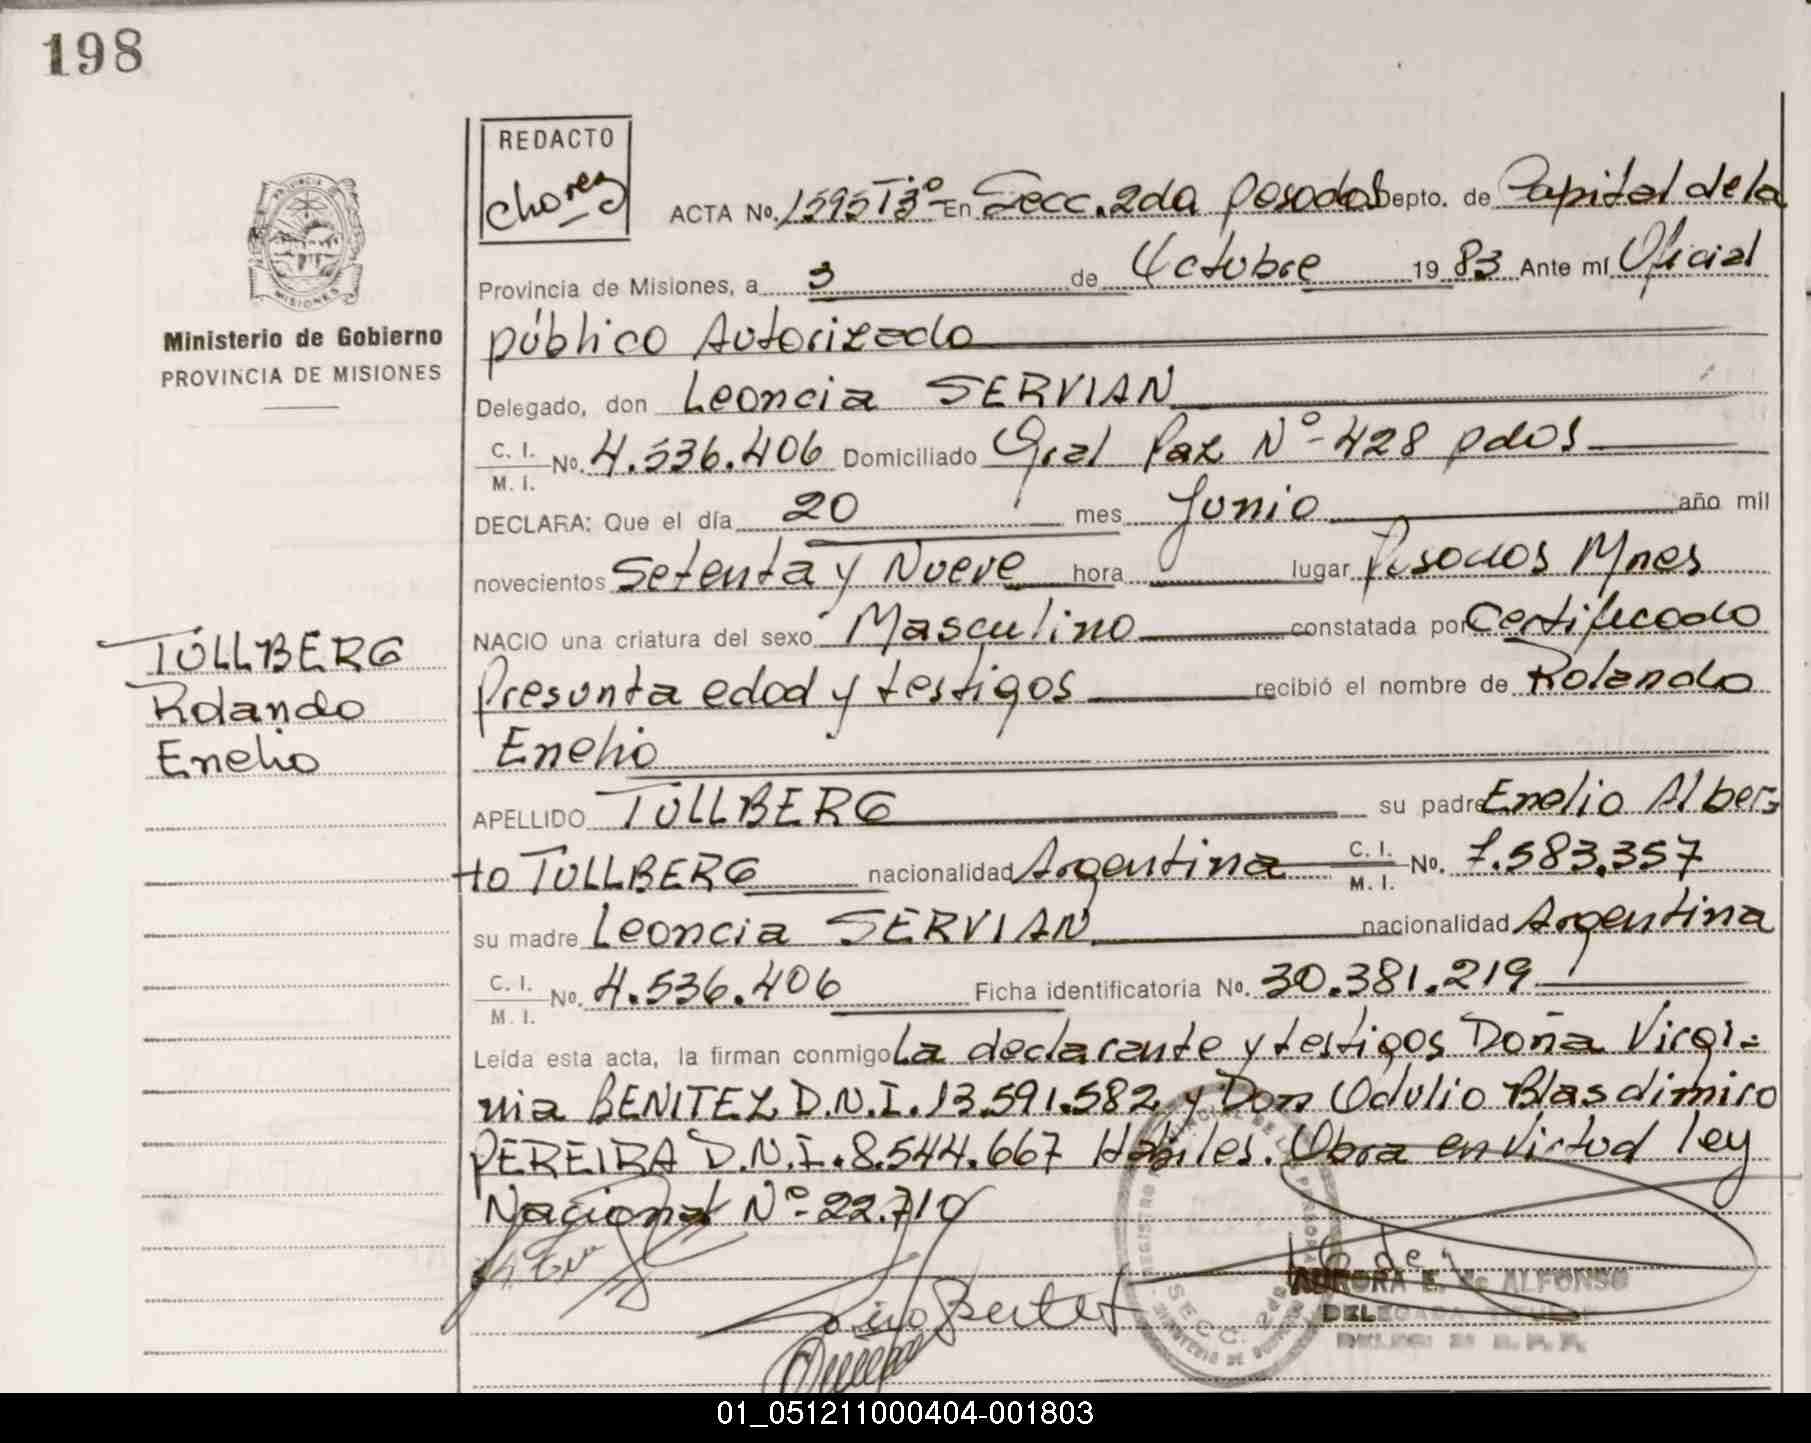 198
REDACTO
chorez
ACTA No. 1595 Tº3º En Secc. 2da Posadas Depto. de Capital de la
Provincia de Misiones, a 3 de Octubre 19 83 Ante mí Oficial
público Autorizado
Delegado, don Leoncia SERVIAN
C. I. / M. I. No. 4.536.406 Domiciliado Gral Paz Nº 428 pdas
DECLARA: Que el día 20 mes Junio año mil
novecientos Setenta y Nueve hora lugar Posadas Mnes
NACIO una criatura del sexo Masculino constatada por Certificado
Presunta edad y testigos recibió el nombre de Rolando
Enelio
APELLIDO TULLBERG su padre Enelio Alber=
to TULLBERG nacionalidad Argentina C. I. / M. I. No. 7.583.357
su madre Leoncia SERVIAN nacionalidad Argentina
C. I. / M. I. No. 4.536.406 Ficha identificatoria No. 30.381.219
Leída esta acta, la firman conmigo La declarante y testigos Doña Virgi=
nia BENITEZ D.N.I. 13.591.582 y Don Odulio Blasdimiro
PEREIRA D.N.I. 8.544.667 Hábiles. Obra en virtud ley
Nacional Nº 22.710
AURORA E. de ALFONSO
SECC. 2da
PROVINCIA
MISIONES
Ministerio de Gobierno
PROVINCIA DE MISIONES
TULLBERG
Rolando
Enelio
01_051211000404-001803